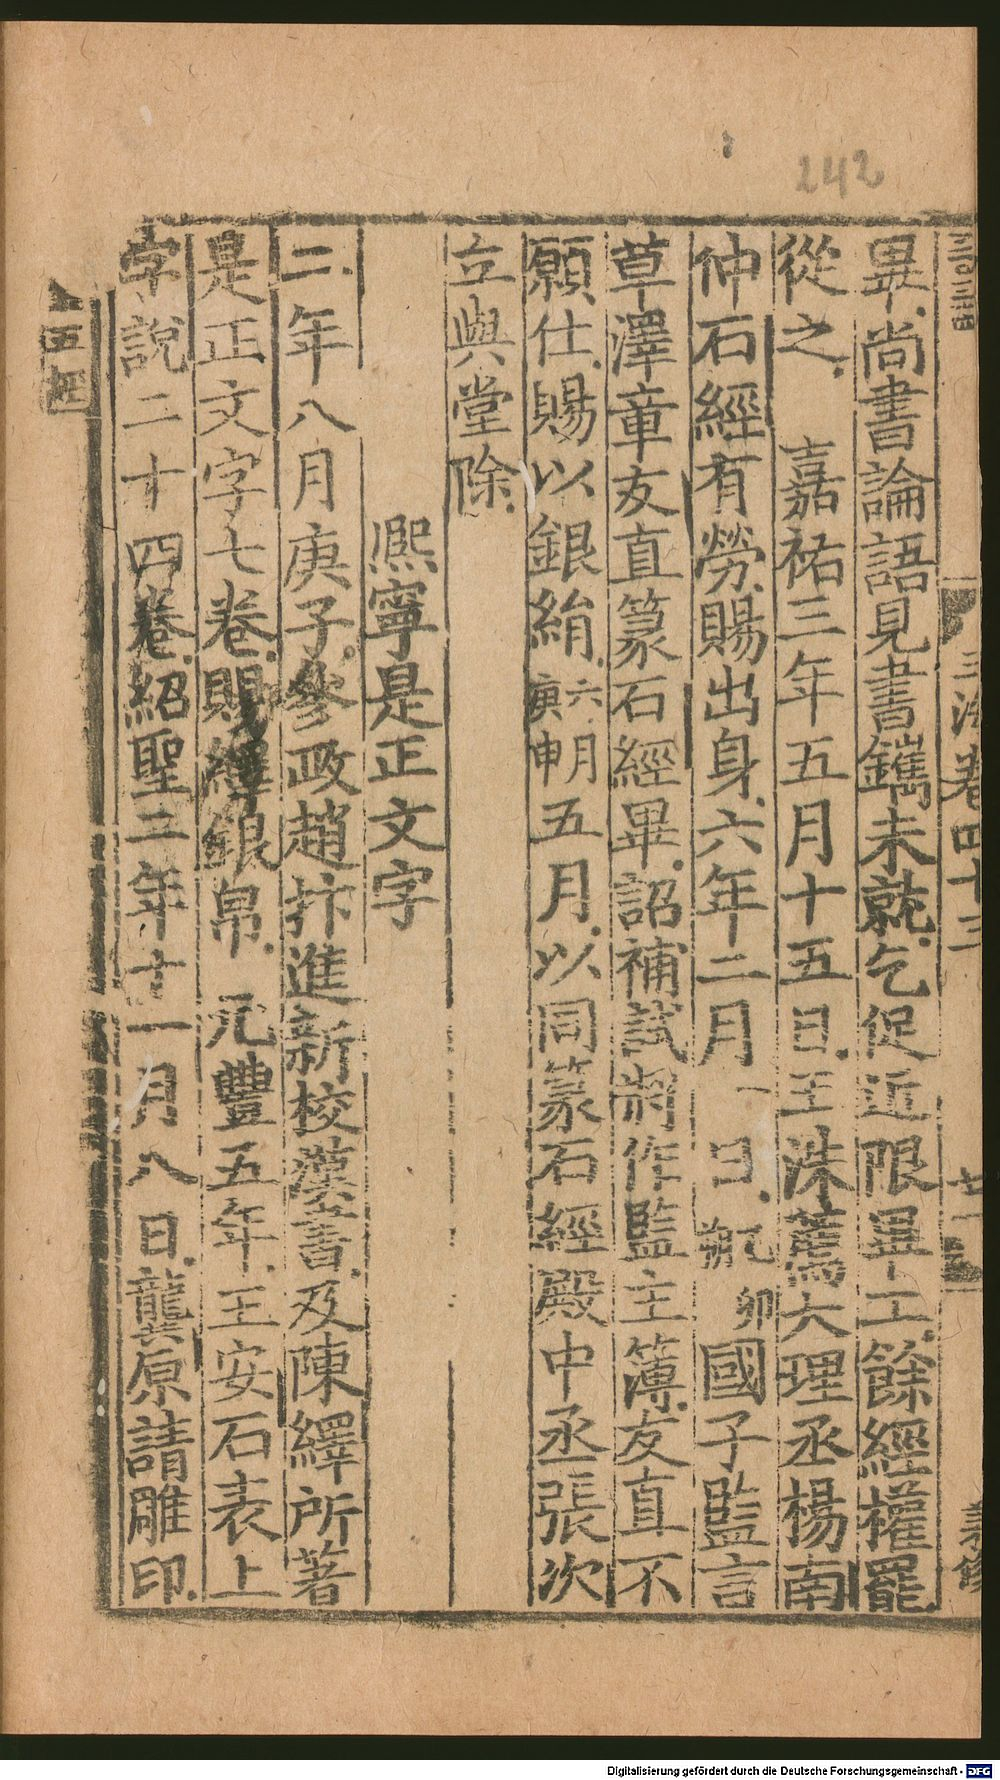 242
畢尚書論語見書鐫未就乞促近限畢工餘經權罷
從之 嘉祐三年五月十五日王洙薦大理丞楊南
仲石經有勞賜出身六年二月一日朔己卯國子監言
草澤章友直篆石經畢詔補試將作監主簿友直不
願仕賜以銀絹六月庚申朔五月以同篆石經殿中丞張次
立與堂除
熙寧是正文字
二年八月庚子參政趙抃進新校漢書及陳繹所著
是正文字七卷賜繹銀帛 元豐五年王安石表上
字說二十四卷紹聖三年十一月八日龔原請雕印
卷四十三
五經
Digitalisierung gefördert durch die Deutsche Forschungsgemeinschaft - DFG